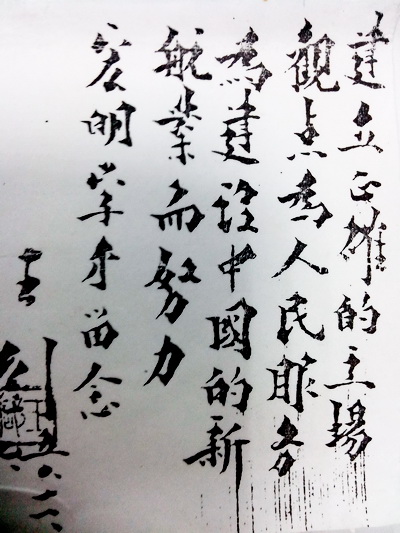 建立正確的立場
觀点為人民服务
為建設中國的新
航業而努力
明学弟留念